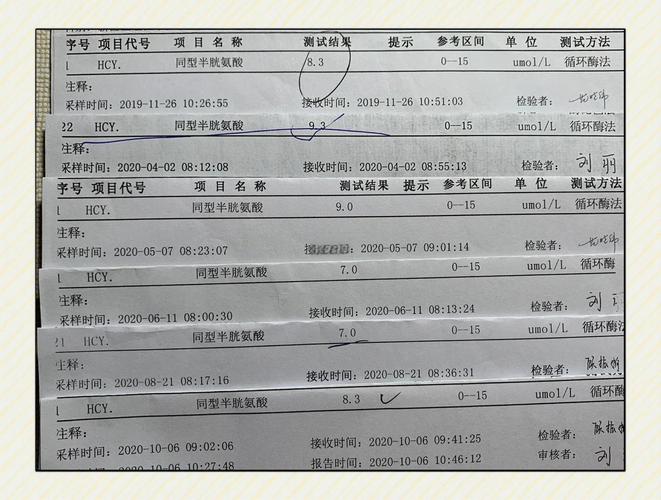 序号 项目代号 项 目 名 称 测试结果 提示 参考区间 单 位 测试方法
1 HCY. 同型半胱氨酸 8.3 0--15 umol/L 循环酶法
注释:
采样时间: 2019-11-26 10:26:55 接收时间: 2019-11-26 10:51:03 检验者:
22 HCY. 同型半胱氨酸 9.3 0--15 umol/L 循环酶法
注释:
采样时间: 2020-04-02 08:12:08 接收时间: 2020-04-02 08:55:13 检验者: 刘丽
序号 项目代号 项 目 名 称 测试结果 提示 参考区间 单 位 测试方法
1 HCY. 同型半胱氨酸 9.0 0--15 umol/L 循环酶法
注释:
采样时间: 2020-05-07 08:23:07 2020-05-07 09:01:14 检验者:
1 HCY. 同型半胱氨酸 7.0 0--15 umol/L 循环酶
注释:
采样时间: 2020-06-11 08:00:30 接收时间: 2020-06-11 08:13:24 检验者: 刘
21 HCY. 同型半胱氨酸 7.0 0--15 umol/L 循环酶法
注释:
采样时间: 2020-08-21 08:17:16 接收时间: 2020-08-21 08:36:31 检验者:
1 HCY. 同型半胱氨酸 8.3 0--15 umol/L 循环酶
注释:
采样时间: 2020-10-06 09:02:06 接收时间: 2020-10-06 09:41:25 检验者:
2020-10-06 10:27:48 报告时间: 2020-10-06 10:46:12 审核者: 刘